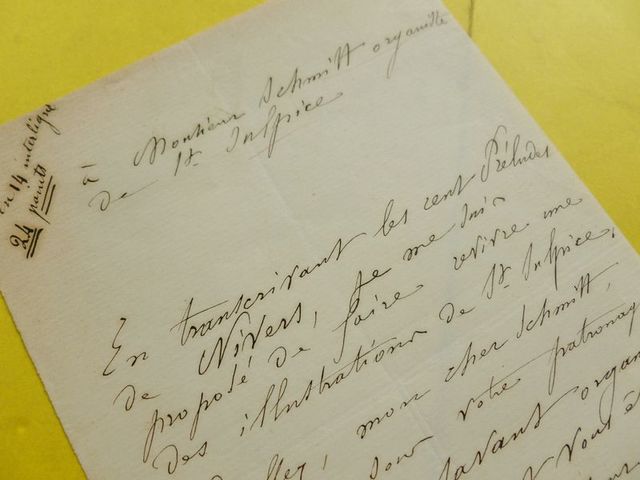 en 14 interligné
24 points
à Monsieur Schmitt organiste
de St. Sulpice
En transcrivant les cent Préludes
de Nivers, je me suis
proposé de faire revivre une
des illustrations de St. Sulpice.
mon cher Schmitt,
sous votre patronag
savant organ
Vous ê